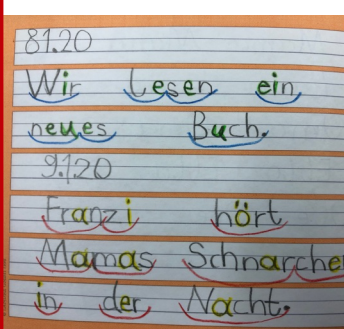 81.20
Wir Lesen ein
neues Buch.
9.1.20
Franzi hört
Mamas Schnarchen
in der Nacht.